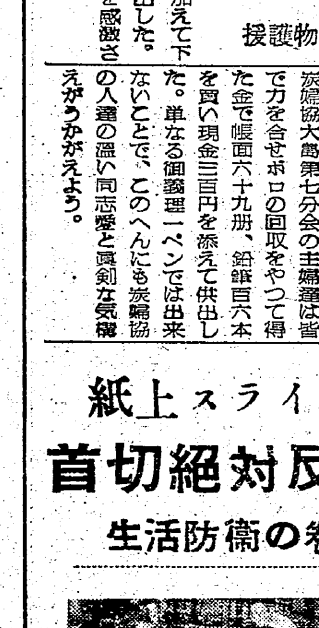 加えて下
出した。
を感激さ
援護物
炭婦協大島第七分会の主婦達は皆
で力を合せボロの回収をやつて得
た金で帳面六十九册、鉛筆百六本
を買い現金三百円を添えて供出し
た。単なる御義理一ペンでは出来
ないことで、このへんにも炭婦協
の人達の温い同志愛と眞剣な気構
えがうかがえよう。
紙上スライ
首切絶対反
生活防衞の巻